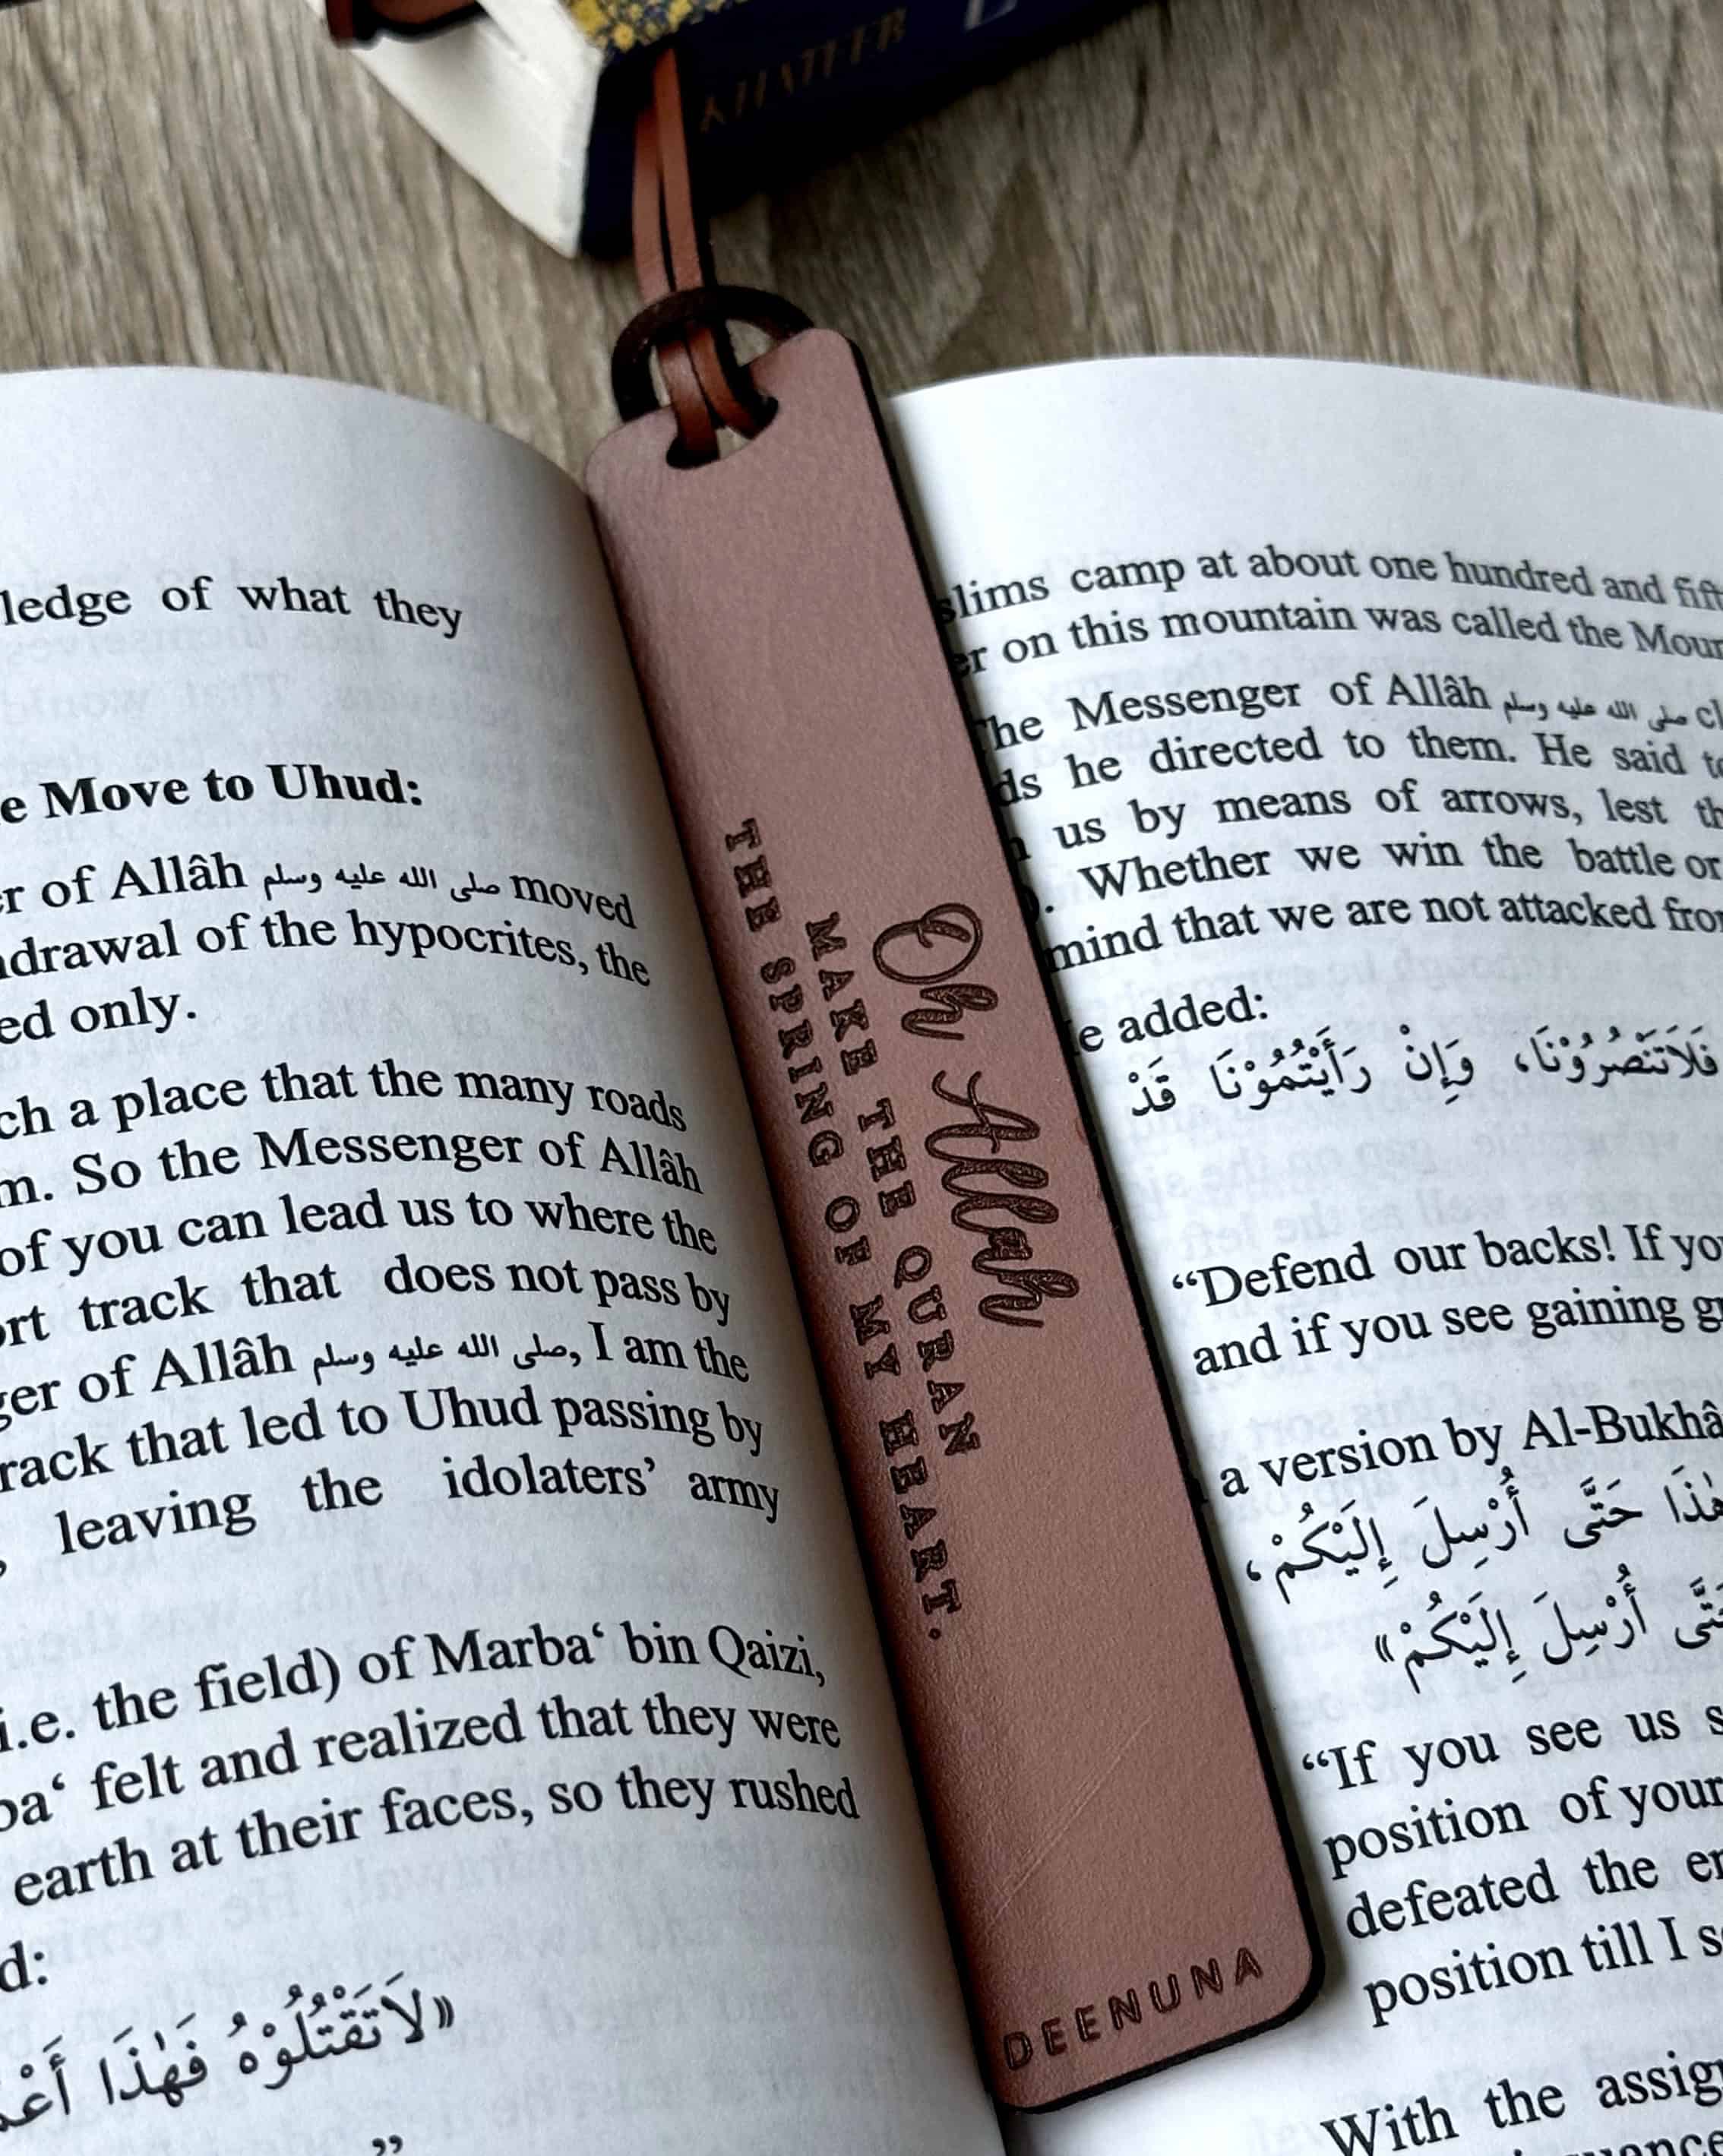 KHATTAB
ledge of what they
e Move to Uhud:
er of Allâh صلى الله عليه وسلم moved
drawal of the hypocrites, the
ed only.
ch a place that the many roads
m. So the Messenger of Allâh
of you can lead us to where the
ort track that does not pass by
ger of Allâh صلى الله عليه وسلم, I am the
rack that led to Uhud passing by
, leaving the idolaters’ army
i.e. the field) of Marba‘ bin Qaizi,
ba‘ felt and realized that they were
earth at their faces, so they rushed
d:
«لاَتَقْتُلُوْهُ فَهٰذَا
”
Oh Allah
MAKE THE QURAN
THE SPRING OF MY HEART.
DEENUNA
slims camp at about one hundred and fift
er on this mountain was called the Moun
The Messenger of Allâh صلى الله عليه وسلم cl
ds he directed to them. He said to
us by means of arrows, lest th
). Whether we win the battle or
mind that we are not attacked from
e added:
فَلاَتَنْصُرُوْنَا، وَإِنْ رَأَيْتُمُوْنَا قَدْ
“Defend our backs! If yo
and if you see gaining gr
a version by Al-Bukhâ
هٰذَا حَتَّى أُرْسِلَ إِلَيْكُمْ،
حَتَّى أُرْسِلَ إِلَيْكُمْ»
“If you see us s
position of your
defeated the en
position till I s
With the assign